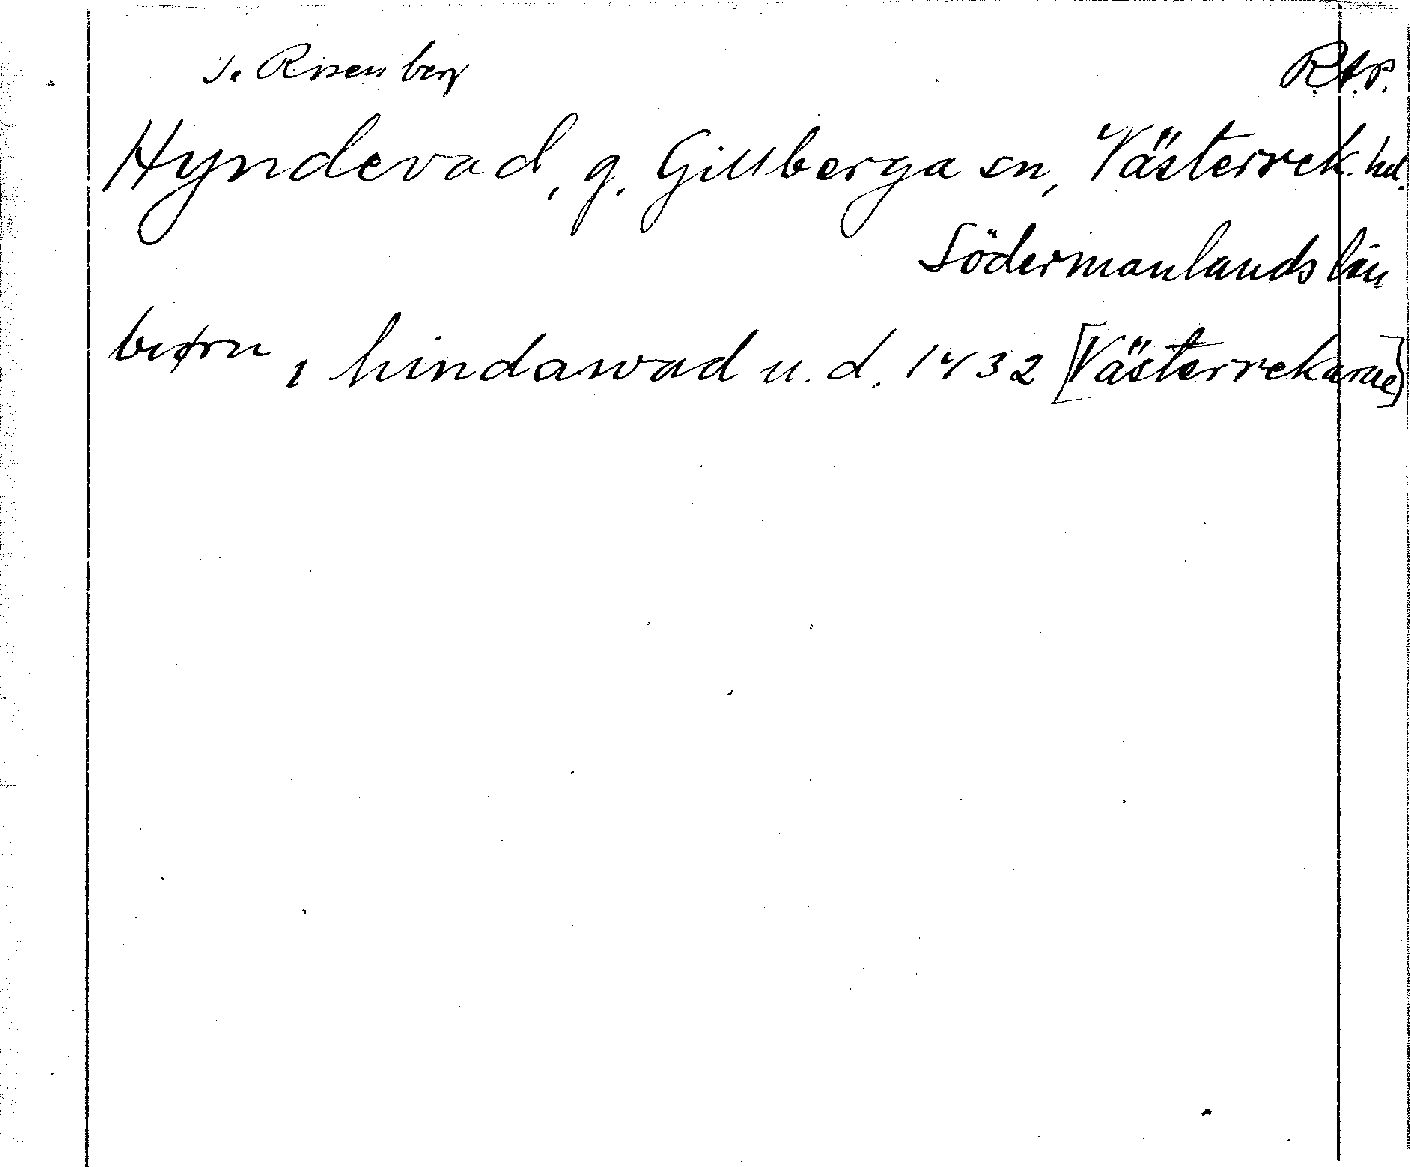 J. Rosenberg R.A.P.
Hyndevad, g. Gillberga sn, Västerrek. hd.
Södermanlands län
biørn i hindawad u.d. 1432 [Västerrekarne]